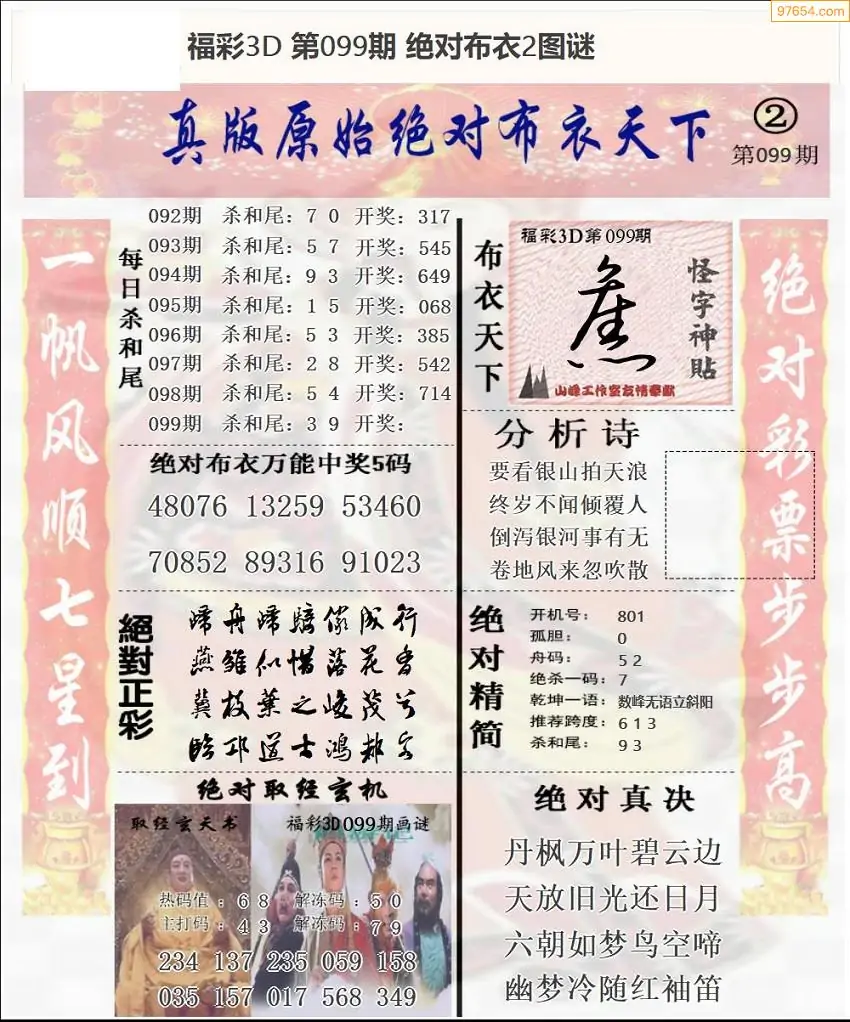 97654.com
福彩3D 第099期 绝对布衣2图谜
真版原始绝对布衣天下
②
第099期
一帆风顺七星到
每日杀和尾
092期 杀和尾: 7 0 开奖: 317
093期 杀和尾: 5 7 开奖: 545
094期 杀和尾: 9 3 开奖: 649
095期 杀和尾: 1 5 开奖: 068
096期 杀和尾: 5 3 开奖: 385
097期 杀和尾: 2 8 开奖: 542
098期 杀和尾: 5 4 开奖: 714
099期 杀和尾: 3 9 开奖:
绝对布衣万能中奖5码
48076 13259 53460
70852 89316 91023
絕對正彩
归舟归骑俨成行
燕雏似惜落花香
冀枝葉之峻茂兮
临邛道士鸿都客
绝对取经玄机
取经玄天书
福彩3D099期画谜
热码值:6 8 解冻码:5 0
主打码:4 3 解冻码:7 9
234 137 235 059 158
035 157 017 568 349
布衣天下
福彩3D第099期
怪字神貼
山峰工作室友情奉献
分析诗
要看银山拍天浪
终岁不闻倾覆人
倒泻银河事有无
卷地风来忽吹散
绝对精简
开机号: 801
孤胆: 0
舟码: 5 2
绝杀一码: 7
乾坤一语: 数峰无语立斜阳
推荐跨度: 6 1 3
杀和尾: 9 3
绝对真决
丹枫万叶碧云边
天放旧光还日月
六朝如梦鸟空啼
幽梦冷随红袖笛
绝对彩票步步高